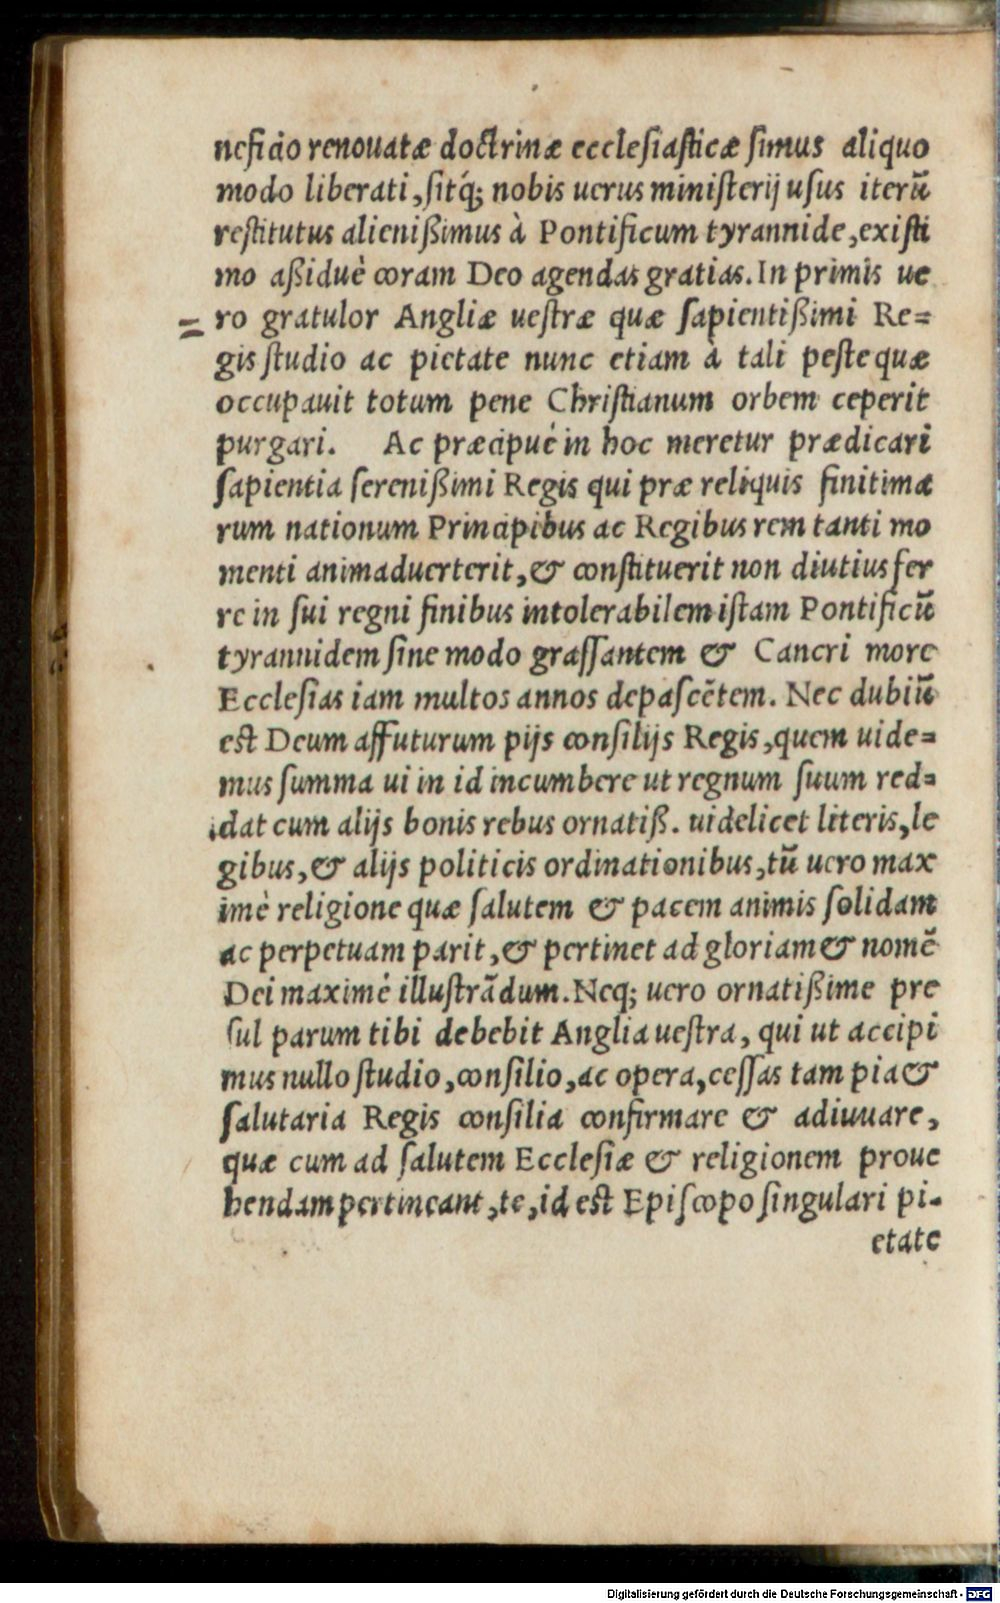 neficio renouatæ doctrinæ ecclesiasticæ simus aliquo
modo liberati, sitq́; nobis uerus ministerij usus iterũ
restitutus alienißimus à Pontificum tyrannide, existi
mo aßiduè coram Deo agendas gratias. In primis ue
ro gratulor Angliæ uestræ quæ sapientißimi Re=
gis studio ac pietate nunc etiam à tali peste quæ
occupauit totum pene Christianum orbem ceperit
purgari. Ac præcipuè in hoc meretur prædicari
sapientia serenißimi Regis qui præ reliquis finitima
rum nationum Principibus ac Regibus rem tanti mo
menti animaduerterit, & constituerit non diutius fer
re in sui regni finibus intolerabilem istam Pontificũ
tyrannidem sine modo grassantem & Cancri more
Ecclesias iam multos annos depascẽtem. Nec dubiũ
est Deum affuturum pijs consilijs Regis, quem uide=
mus summa ui in id incumbere ut regnum suum red=
dat cum alijs bonis rebus ornatiß. uidelicet literis, le
gibus, & alijs politicis ordinationibus, tũ uero max
imè religione quæ salutem & pacem animis solidam
ac perpetuam parit, & pertinet ad gloriam & nomẽ
Dei maximè illustrãdum. Neq; uero ornatißime pre
sul parum tibi debebit Anglia uestra, qui ut accipi
mus nullo studio, consilio, ac opera, cessas tam pia &
salutaria Regis consilia confirmare & adiuuare,
quæ cum ad salutem Ecclesiæ & religionem proue
hendam pertineant, te, id est Episcopo singulari pi-
etate
Digitalisierung gefördert durch die Deutsche Forschungsgemeinschaft - DFG